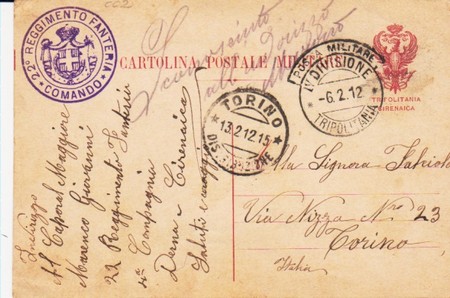 CC2
22º REGGIMENTO FANTERIA
COMANDO
CARTOLINA POSTALE MILITARE
Sconosciuto
POSTA MILITARE
IV DIVISIONE
-6.2.12
TRIPOLITANIA
TRIPOLITANIA
CIRENAICA
TORINO
13.2.12.15
Indirizzo
Al Caporal Maggiore
Marenco Giovanni
22 Reggimento Fanteria
4ª Compagnia
Derna - Cirenaica
Saluti e
Alla Signora
Via Nizza Nº 23
Torino
Italia